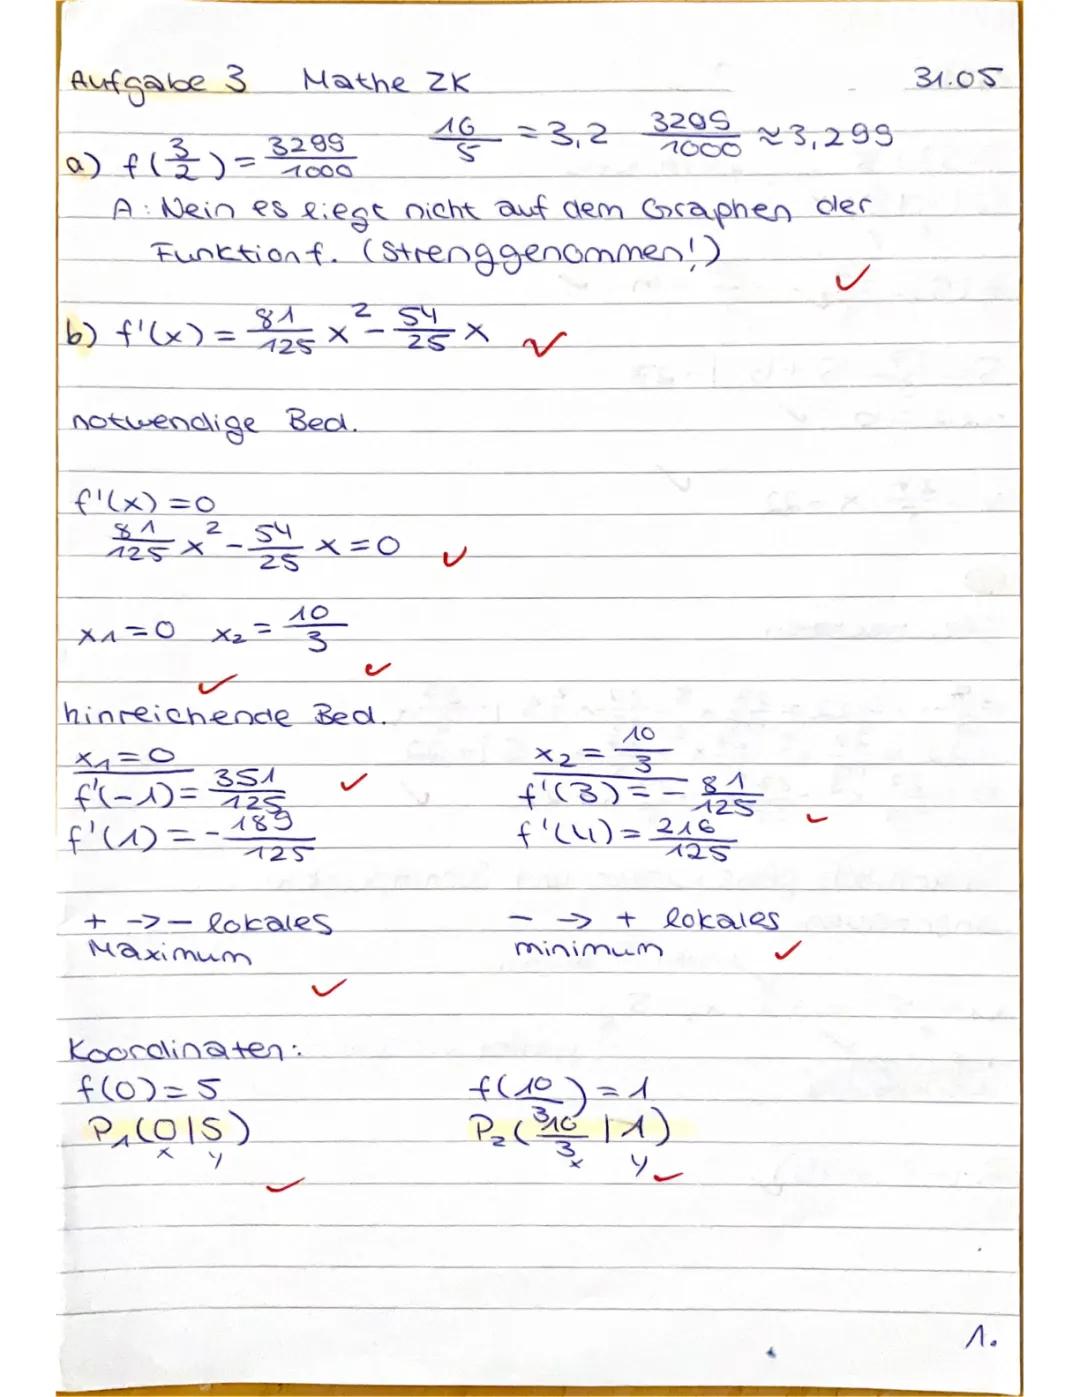 Aufgabe 3 Mathe ZK 31.05
a) f(3/2) = 3299/1000 16/5 = 3,2 3299/1000 ≈ 3,299
A: Nein es liegt nicht auf dem Graphen der
Funktion f. (Strenggenommen!)
b) f'(x) = 81/125 x² - 54/25 x
notwendige Bed.
f'(x) = 0
81/125 x² - 54/25 x = 0
x1 = 0 x2 = 10/3
hinreichende Bed.
x1 = 0 x2 = 10/3
f'(-1) = 351/125 f'(3) = - 81/125
f'(1) = - 189/125 f'(4) = 216/125
+ -> - lokales - -> + lokales
Maximum minimum
Koordinaten:
f(0) = 5 f(10/3) = 1
P1(0|5) P2(10/3|1)
x y x y
1.